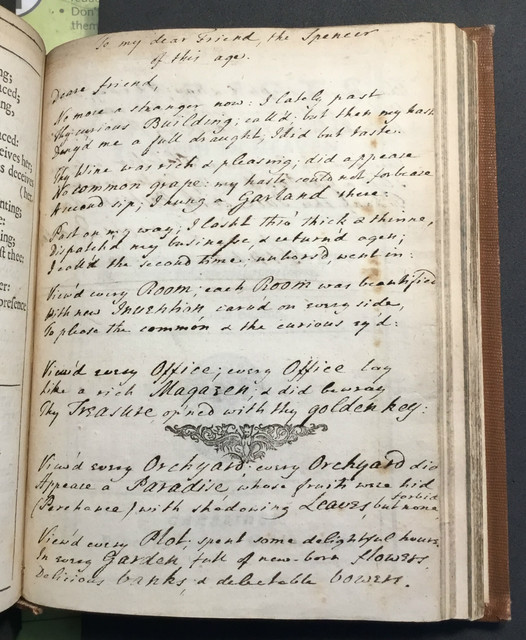 Don't
them
To my dear Friend, the Spencer
of this age.
Deare friend,
No more a stranger now: I lately past
Thy curious Building; call'd; but then my hast
Deny'd me a full draught, I did but taste.
Thy Wine was rich & pleasing; did appease
No common grape: my haste could not forbeare
A second sip; I hung a Garland there:
Past on my way; I lasht thro' thick & thinne,
Dispatch'd my businesse, & return'd agen;
I call'd the second time; unhors'd, went in:
View'd every Room; each Room was beautified
With new Invention, carv'd on every side,
To please the common & the curious ey'd:
View'd every Office; every Office lay
Like a rich Magazen; & did bewray
Thy Treasure, op'ned with thy golden key:
View'd every Orchyard; every Orchyard did
Appeare a Paradise, whose fruits were hid
(Perchance) with shadowing Leaves, but none forbid
View'd every Plot; spent some delightful houres
In every Garden, full of new-born flowers,
Delicious banks, & delectable bowers.
ng;
nced;
ng,
ced:
ceives her;
s deceives
(her.
nting;
e:
ing;
st thee:
er:
prefence